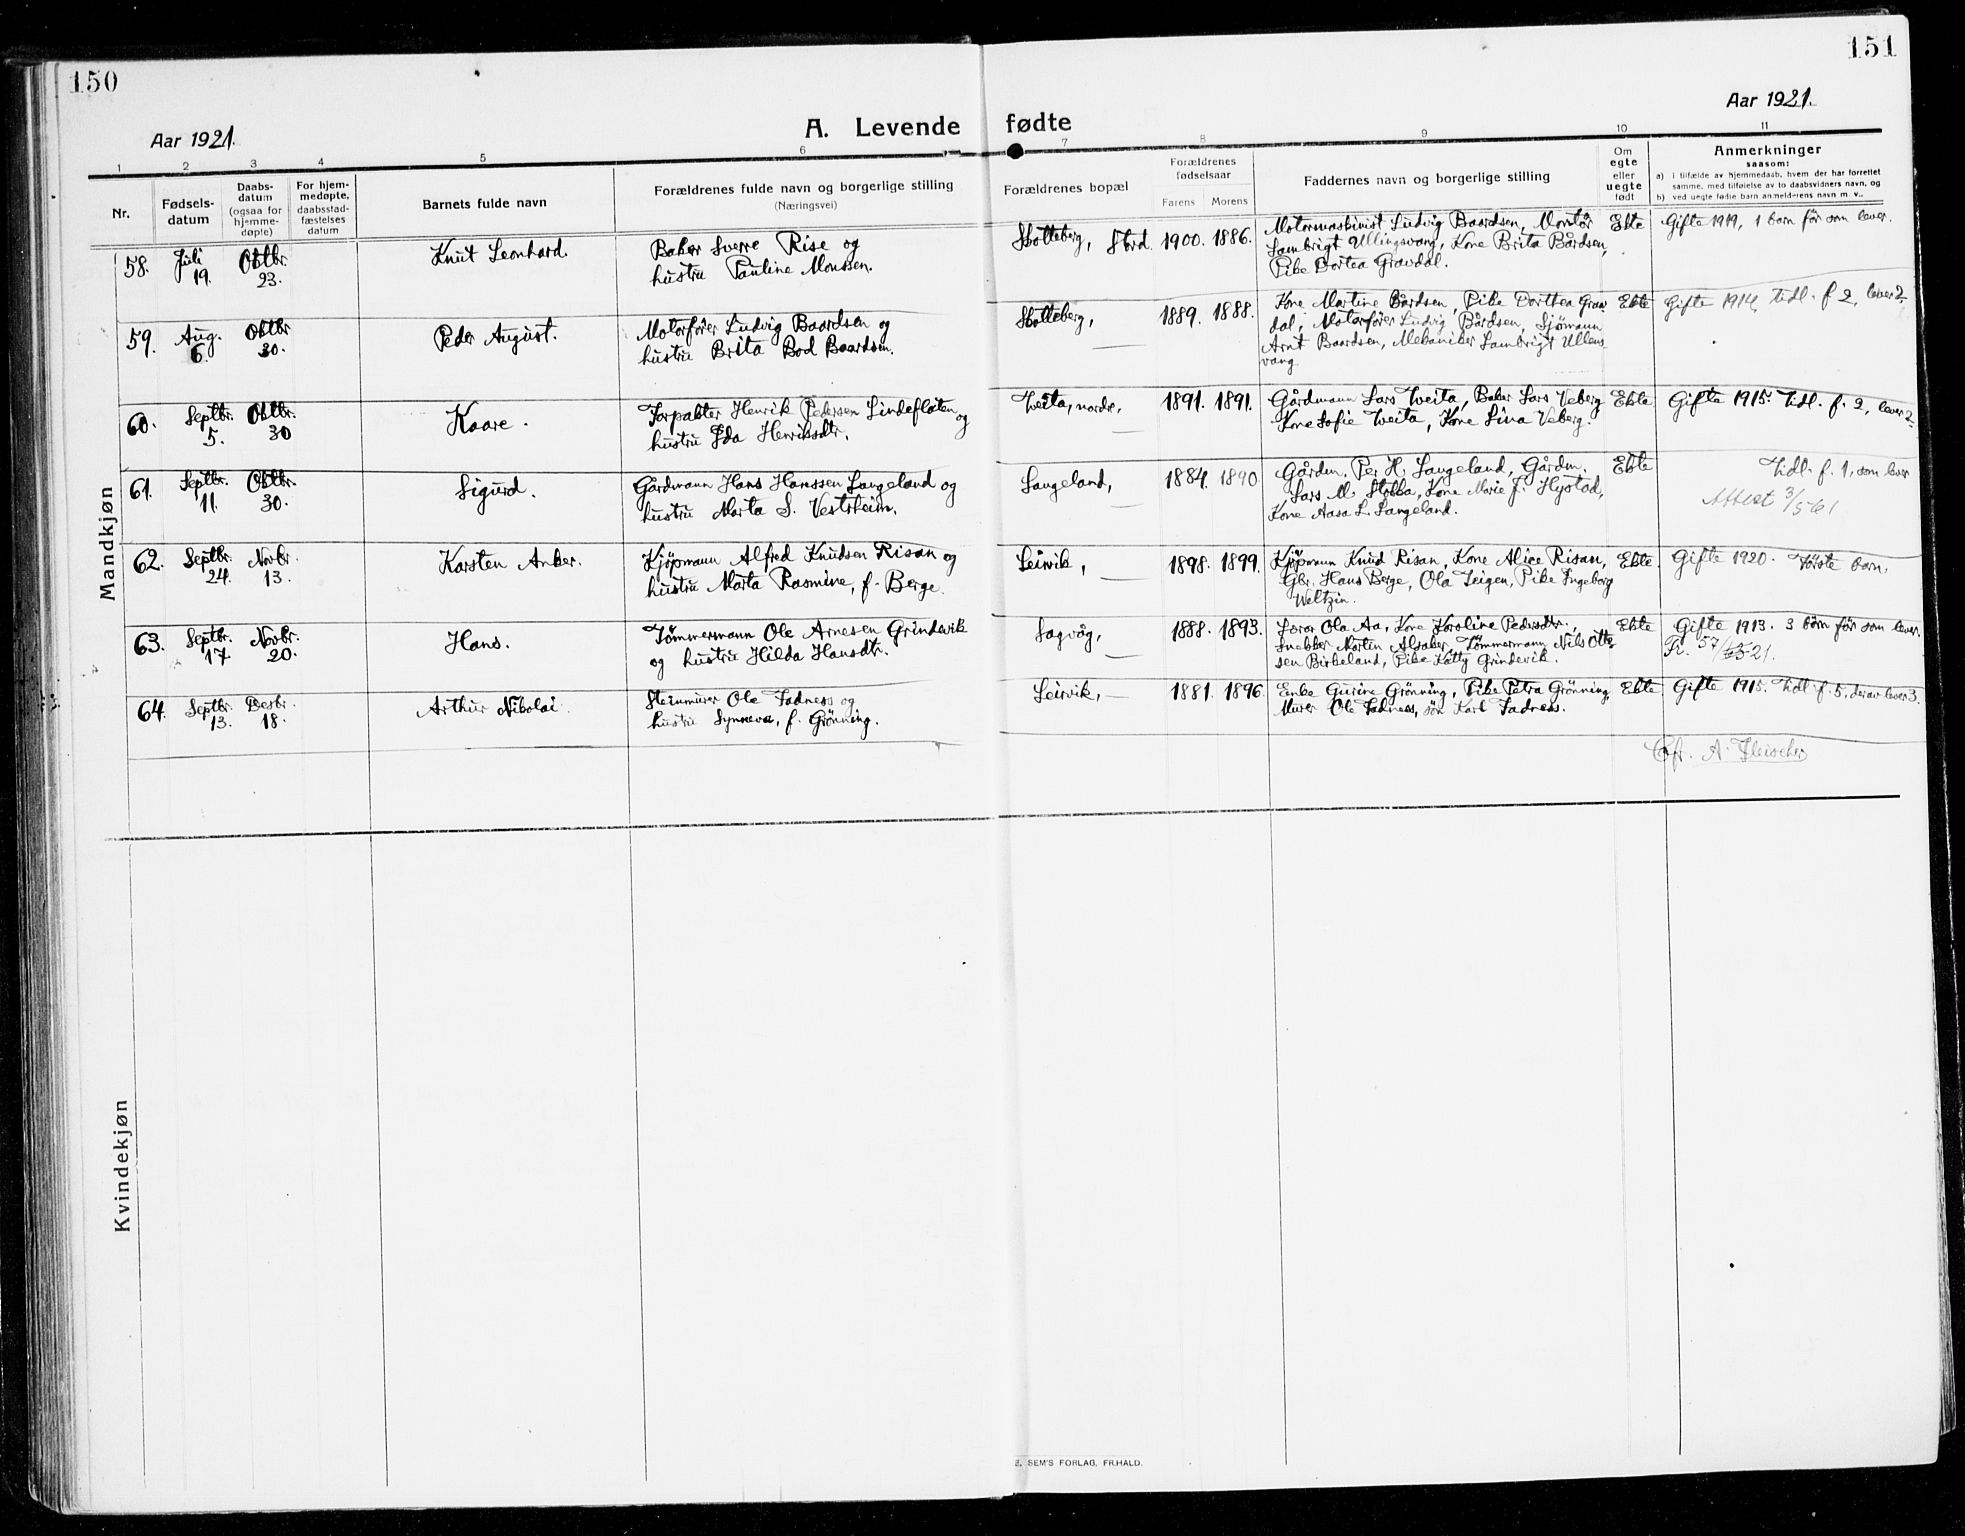 150
151
Aar 1921.
A. Levende fødte
Aar 1921.
1 2 3 4 5 6 7 8 9 10 11
Nr.
Fødsels-
datum
Daabs-
datum
(ogsaa for
hjemme-
døpte)
For hjem-
medøpte,
daabsstad-
fæstelses
datum
Barnets fulde navn
Forældrenes fulde navn og borgerlige stilling
(Næringsvei)
Forældrenes bopæl
Forældrenes
fødselsaar
Farens Morens
Faddernes navn og borgerlige stilling
Om
egte
eller
uegte
født
Anmerkninger
saasom:
a) i tilfælde av hjemmedaab, hvem der har forrettet
samme, med tilføielse av to daabsvidners navn, og
b) ved uegte fødte barn anmelderens navn m. v..
Mandkjøn
58. Juli 19. Oktbr. 23. Knut Leonhard.
Baker Sverre Rise og
hustru Pauline Monssen.
Stord. 1900. 1886.
Motormaskinist Ludvig Baardsen, Montør
Lambrigt Ullingsvang, Kone Brita Bårdsen,
Pike Dortea Gravdal.
Ekte
Gifte 1919, 1 barn før som lever.
59. Aug. 6. Oktbr 30. Peder August.
Motorfører Ludvig Baardsen og
hustru Brita Bod Baardsen.
1889. 1888.
Kone Martine Bårdsen, Pike Dorthea Grav-
dal, Motorfører Ludvig Bårdsen, Sjømann
Arnt Baardsen, Mekaniker Lambrigt Ullens-
vang
Ekte
Gifte 1914, tidl. f 2, lever 2
60. Septbr. 5. Oktbr. 30 Kaare.
Forpakter Henrik Pedersen Lindefløten og
hustru Ida Henriksdtr.
Tveita, nordr, 1891. 1891.
Gårdmann Lars Tveita, Baker Lars Veberg
Kone Sofie Tveita, Kone Lina Veberg.
Ekte
Gifte 1915. Tidl. f. 2, lever 2
61. Septbr. 11. Oktbr. 30. Sigurd.
Gårdmann Hans Hanssen Langeland og
hustru Marta S. Vestrheim.
Langeland, 1884. 1890
Gårdm. Per H. Langeland, Gårdm.
Lars M. Kone Marie J. Hystad,
Kone Aasa L. Langeland.
Ekte
Tidl. f. 1, som lever
Attest 3/5 61
62. Septbr. 24. Novbr. 13. Karsten Anker.
Kjøpmann Alfred Knudsen Risan og
hustru Marta Rasmine, f. Berge.
Leirvik, — 1898. 1899.
Kjøpmann Knud Risan, Kone Alice Risan,
Gbr. Hans Berge, Ola Teigen, Pike Ingeborg
Weltzin.
Ekte
Gifte 1920. Første barn.
63. Septbr. 17 Novbr. 20. Hans.
Tømmermann Ole Arnesen Grindevik
og hustru Hilda Hansdtr.
Sagvåg, — 1888. 1893.
Lærer Ola Aa, Kone Karoline Pedersdtr.,
Snekker Martin Alsaker, Tømmermann Nils Otte-
sen Birkeland, Pike Kátty Grindevik.
Ekte
Gifte 1913. 3 børn før som lever.
64. Septbr. 13. Desbr. 18. Arthur Nikolai.
Steinmurer Ole Fadness og
hustru Synneva, f. Grønning.
Leirvik, — 1881. 1896.
Enke Gurine Grønning, Pike Petra Grønning
Murer Ole Fadness, søn Karl Fadness.
Ekte
Gifte 1915. Tidl. f. 5, derav lever 3.
A. Fleischer
Kvindekjøn
E. SEM'S FORLAG, FR.HALD.